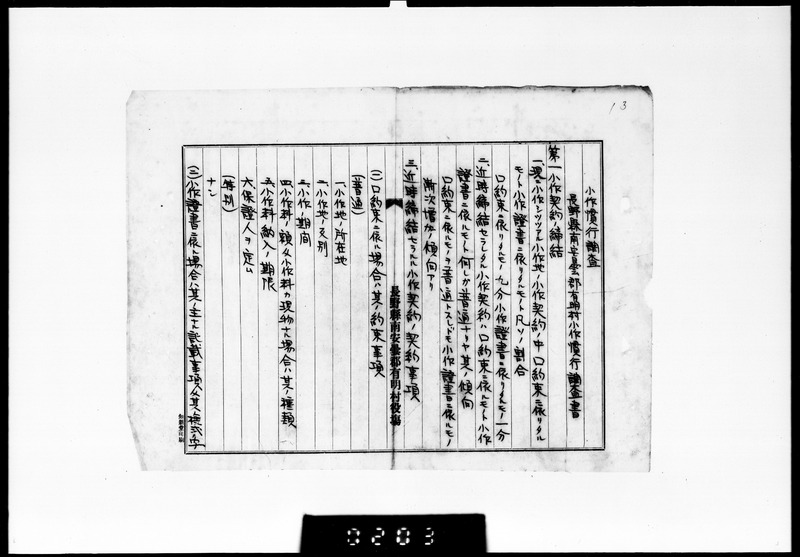 13
小作慣行調査
長野縣南安曇郡有明村小作慣行調査書
第一 小作契約ノ締結
一、現ニ小作シツツアル小作地ノ小作契約ノ中口約束ニ依リタル
モノト小作證書ニ依リタルモノト凡ソノ割合
口約束ニ依リタルモノ九分小作證書ニ依リタルモノ一分
二、近時締結セラレタル小作契約ハ口約束ニ依ルモノト小作
證書ニ依ルモノト何レカ普通ナリヤ其ノ傾向
口約束ニ依ルモノヲ普通トスレドモ小作證書ニ依ルモノ
漸次増加ノ傾向アリ
三、近時締結セラルル小作契約ノ契約事項
長野縣南安曇郡有明村役場
(一)口約束ニ依ル場合ハ其ノ約束事項
(普通)
一、小作地ノ所在地
二、小作地ノ反別
三、小作ノ期間
四、小作料ノ額及小作料カ現物ナル場合ハ其ノ種類
五、小作料納入ノ期限
六、保證人ヲ定ム
(特別)
ナシ
(二)小作證書ニ依ル場合ハ其ノ主ナル記載事項及其ノ様式等
0203